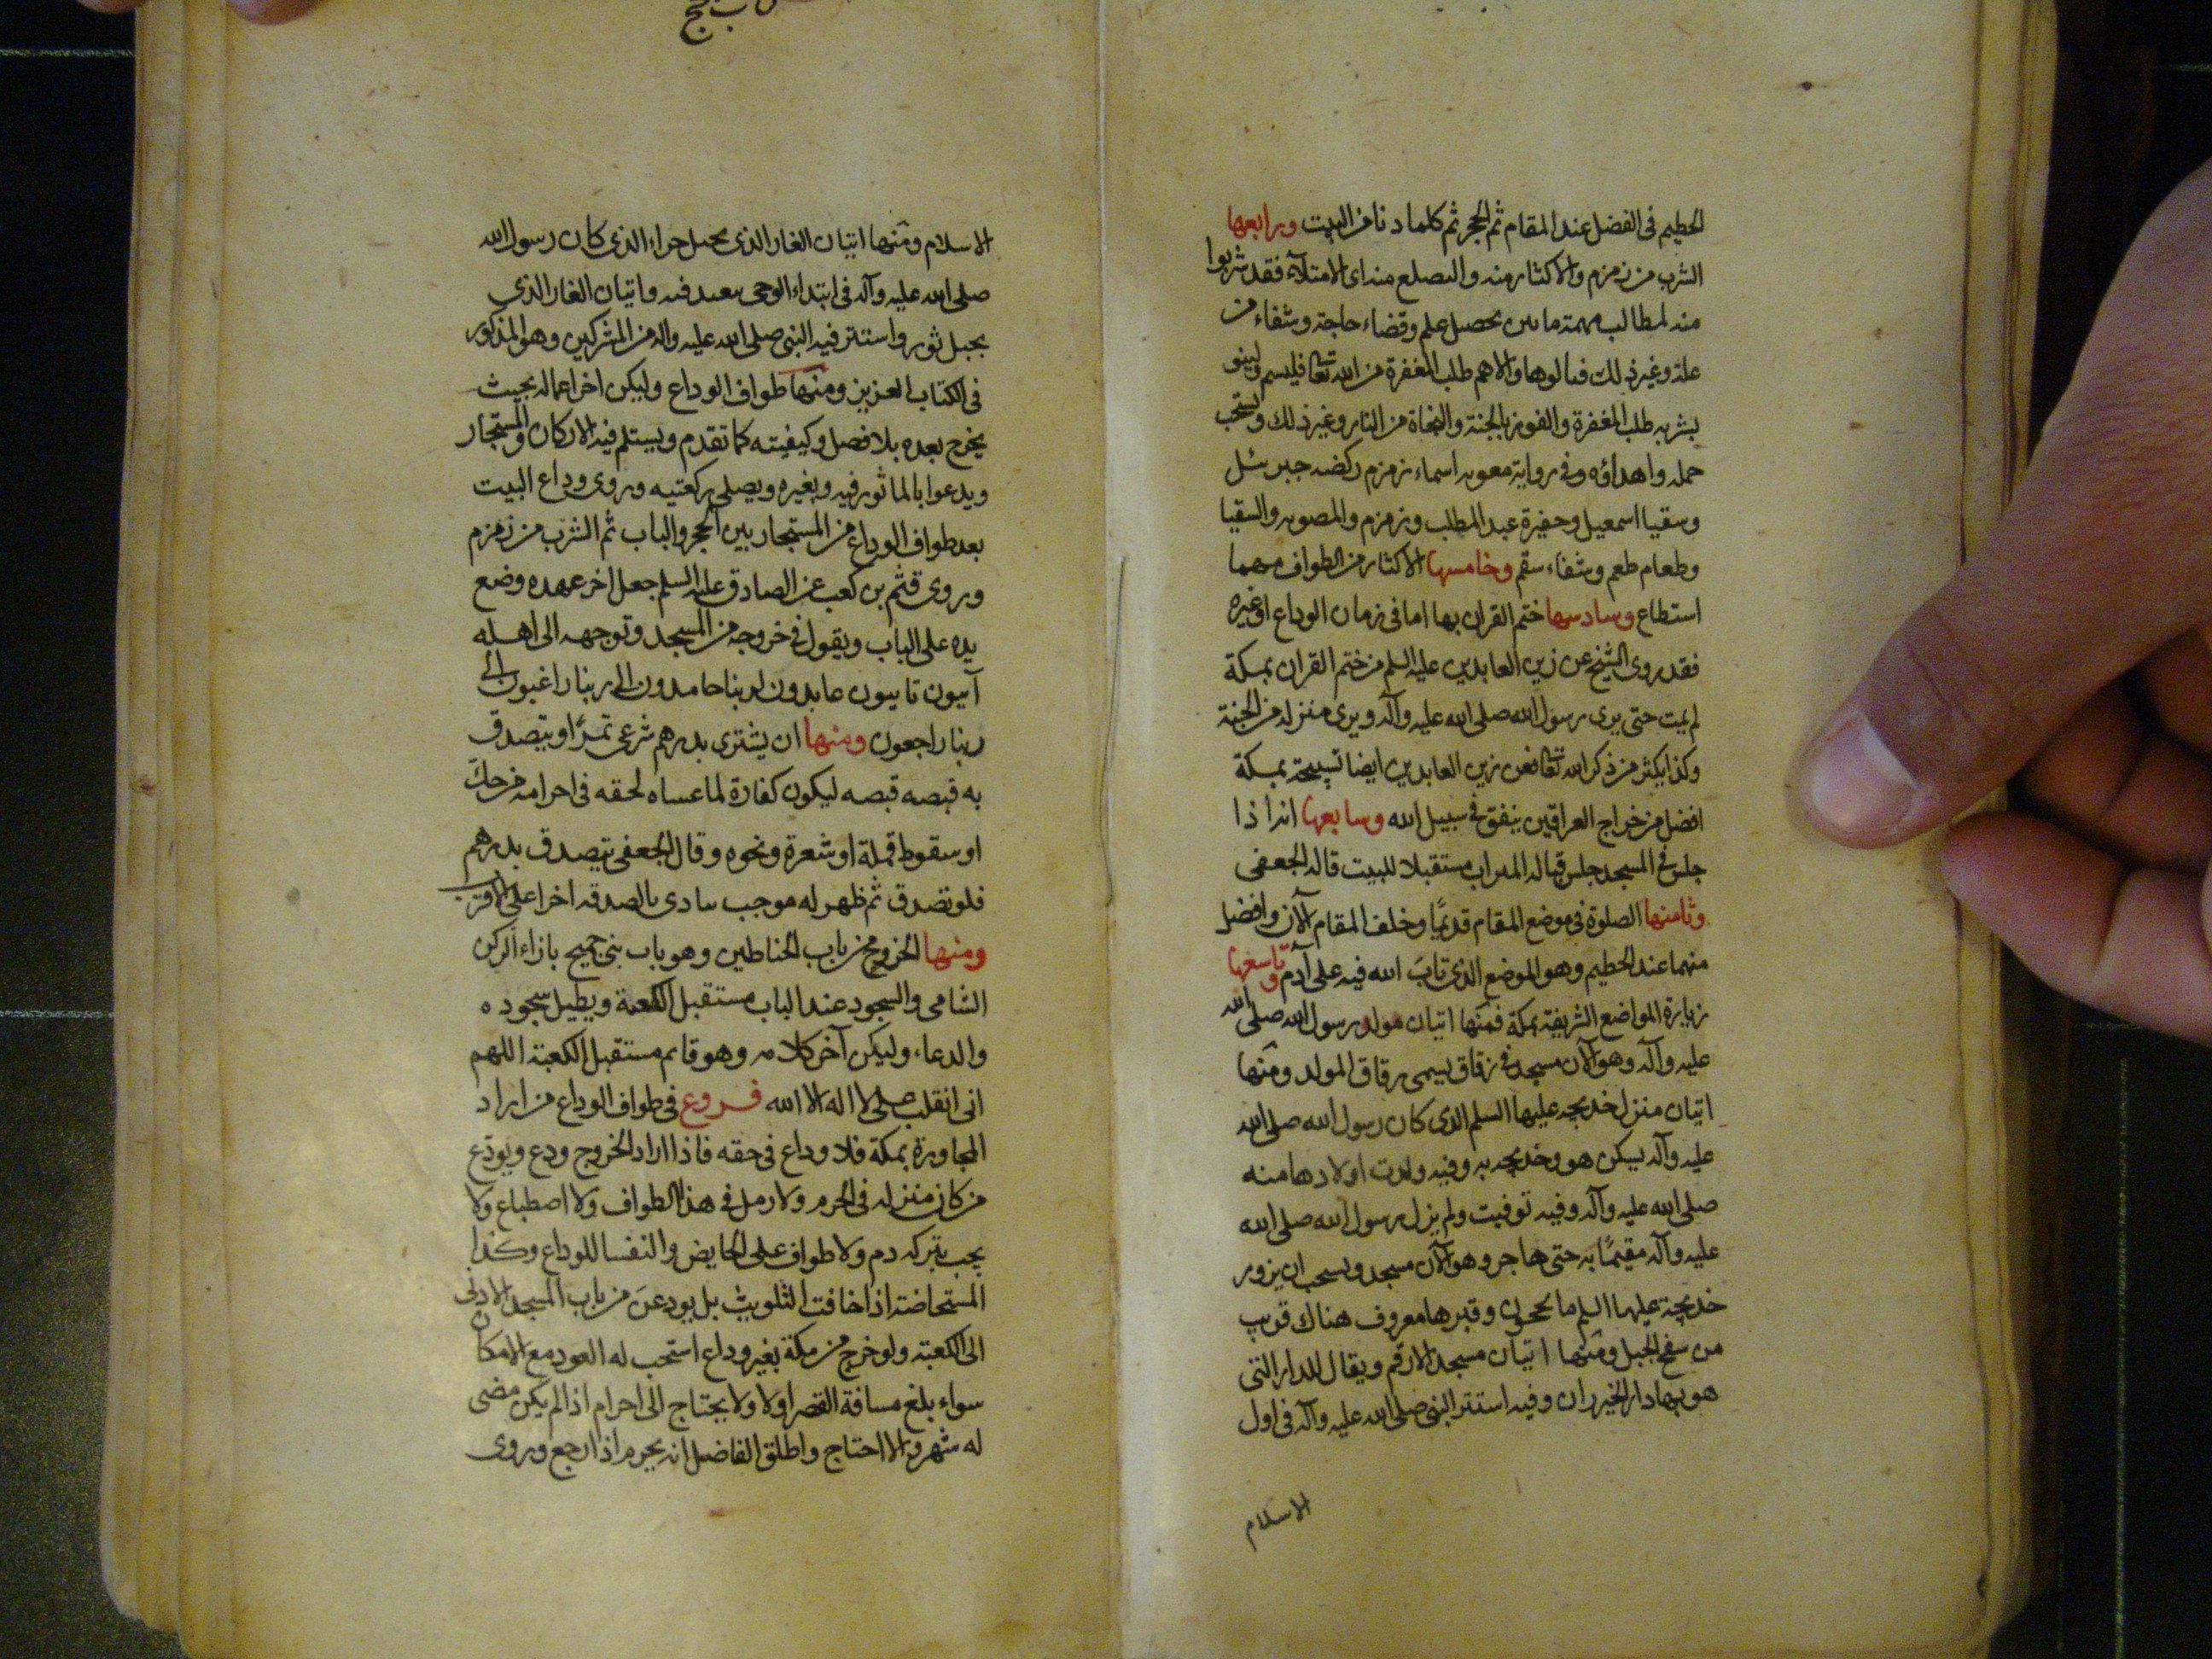 الحطيم فى الفضل عند المقام ثم الحجر ثم كلما دنا من البيت ورابعها
الشرب من زمزم والاكثار منه والتضلع منه اى الامتلآء فقد شربوا
منه لمطالب مهمة ما بين تحصيل علم وقضاء حاجة وشفاء من
علة وغير ذلك فنالوها والاهم طلب المغفرة من الله تعالى فليسم ولينو
بشربه طلب المغفرة والفوز بالجنة والنجاة من النار وغير ذلك ويستحب
حمله واهداؤه وفى رواية معوية اسماء زمزم ركضة جبرئيل
وسقيا اسمعيل وحفيرة عبد المطلب وزمزم والمصونه والسقيا
وطعام طعم وشفاء سقم وخامسها الاكثار من الطواف مهما
استطاع وسادسها ختم القران بها اما فى زمان الوداع او غيره
فقد روى الشيخ عن زين العابدين عليه السلم من ختم القران بمكة
لم يمت حتى يرى رسول الله صلى الله عليه وآله ويرى منزله من الجنة
وكذا يكثر من ذكر الله تعالى فعن زين العابدين ايضا تسبيحة بمكة
افضل من خراج العراقين ينفق فى سبيل الله وسابعها انه اذا
جلس فى المسجد جلس قبالة الميزاب مستقبلا للبيت قاله الجعفى
وثامنها الصلوة فى موضع المقام قديمًا وخلف المقام الآن وافضل
منهما عند الحطيم وهو الموضع الذى تابَ الله فيه على آدم وتاسعها
زيارة المواضع الشريفة بمكة فمنها اتيان مولد رسول الله صلى الله
عليه وآله وهو الآن مسجد فى زقاق يسمى زقاق المولد ومنها
اتيان منزل خديجه عليها السلم الذى كان رسول الله صلى الله
عليه وآله يسكن هو وخديجه به وفيه ولدت اولادها منه
صلى الله عليه وآله وفيه توفيت ولم يزل رسول الله صلى الله
عليه وآله مقيمًا به حتى هاجر وهو الآن مسجد ويستحب ان يزور
خديجة عليها السلم بالحجون وقبرها معروف هناك قريب
من سفح الجبل ومنها اتيان مسجد الارقم ويقال للدار التى
هو بها دار الخيزران وفيه استتر النبى صلى الله عليه وآله فى اول
الاسلام
الاسلام ومنها اتيان الغار الذى بجبل حراء الذى كان رسول الله
صلى الله عليه وآله فى ابتداء الوحى يتعبد فيه واتيان الغار الذى
بجبل ثور واستتر فيه النبى صلى الله عليه واله من المشركين وهو المذكور
فى الكتاب العزيز ومنها طواف الوداع وليكن اخر اعماله بحيث
يخرج بعده بلا فصل وكيفيته كما تقدم ويستلم فيه الاركان والمستجار
ويدعوا بالماثور فيه وبغيره ويصلى ركعتيه وروى وداع البيت
بعد طواف الوداع من المستجار بين الحجر والباب ثم الشرب من زمزم
وروى قثم بن كعب عن الصادق عليه السلم جعل اخر عهده وضع
يده على الباب ويقول فى خروجه من المسجد وتوجهه الى اهله
آيبون تايبون عابدون لربنا حامدون الى ربنا راغبون الى
ربنا راجعون ومنها ان يشترى بدرهم شرعى تمرًا ويتصدق
به قبصه قبصه ليكون كفارة لما عساه لحقه فى احرامه من حك
او سقوط قملة او شعرة ونحوه وقال الجعفى يتصدق بدرهم
فلو تصدق ثم ظهر له موجب يتادى بالصدقه اخرا على الاقرب
ومنها الخروج من باب الحناطين وهو باب بنى جميح بازاء الركن
الشامى والسجود عند الباب مستقبل الكعبة ويطيل سجوده
والدعاء وليكن آخر كلامه وهو قايم مستقبل الكعبة اللهم
انى انقلب على لا اله الا الله فروع فى طواف الوداع من اراد
المجاورة بمكة فلا وداع فى حقه فاذا اراد الخروج ودع ويودع
من كان منزله فى الحرم ولا رمل فى هذا الطواف ولا اصطباع ولا
يجب بتركه دم ولا طواف على الحايض والنفسا للوداع وكذا
المستحاضة اذا خافت التلويث بل يودعن من باب المسجد الادنى
الى الكعبة ولو خرج من مكة بغير وداع استحب له العود مع الامكان
سواء بلغ مسافة القصر اولا ولا يحتاج الى احرام اذا لم يكن مضى
له شهر والا احتاج واطلق الفاضل انه يحرم اذا رجع وروى